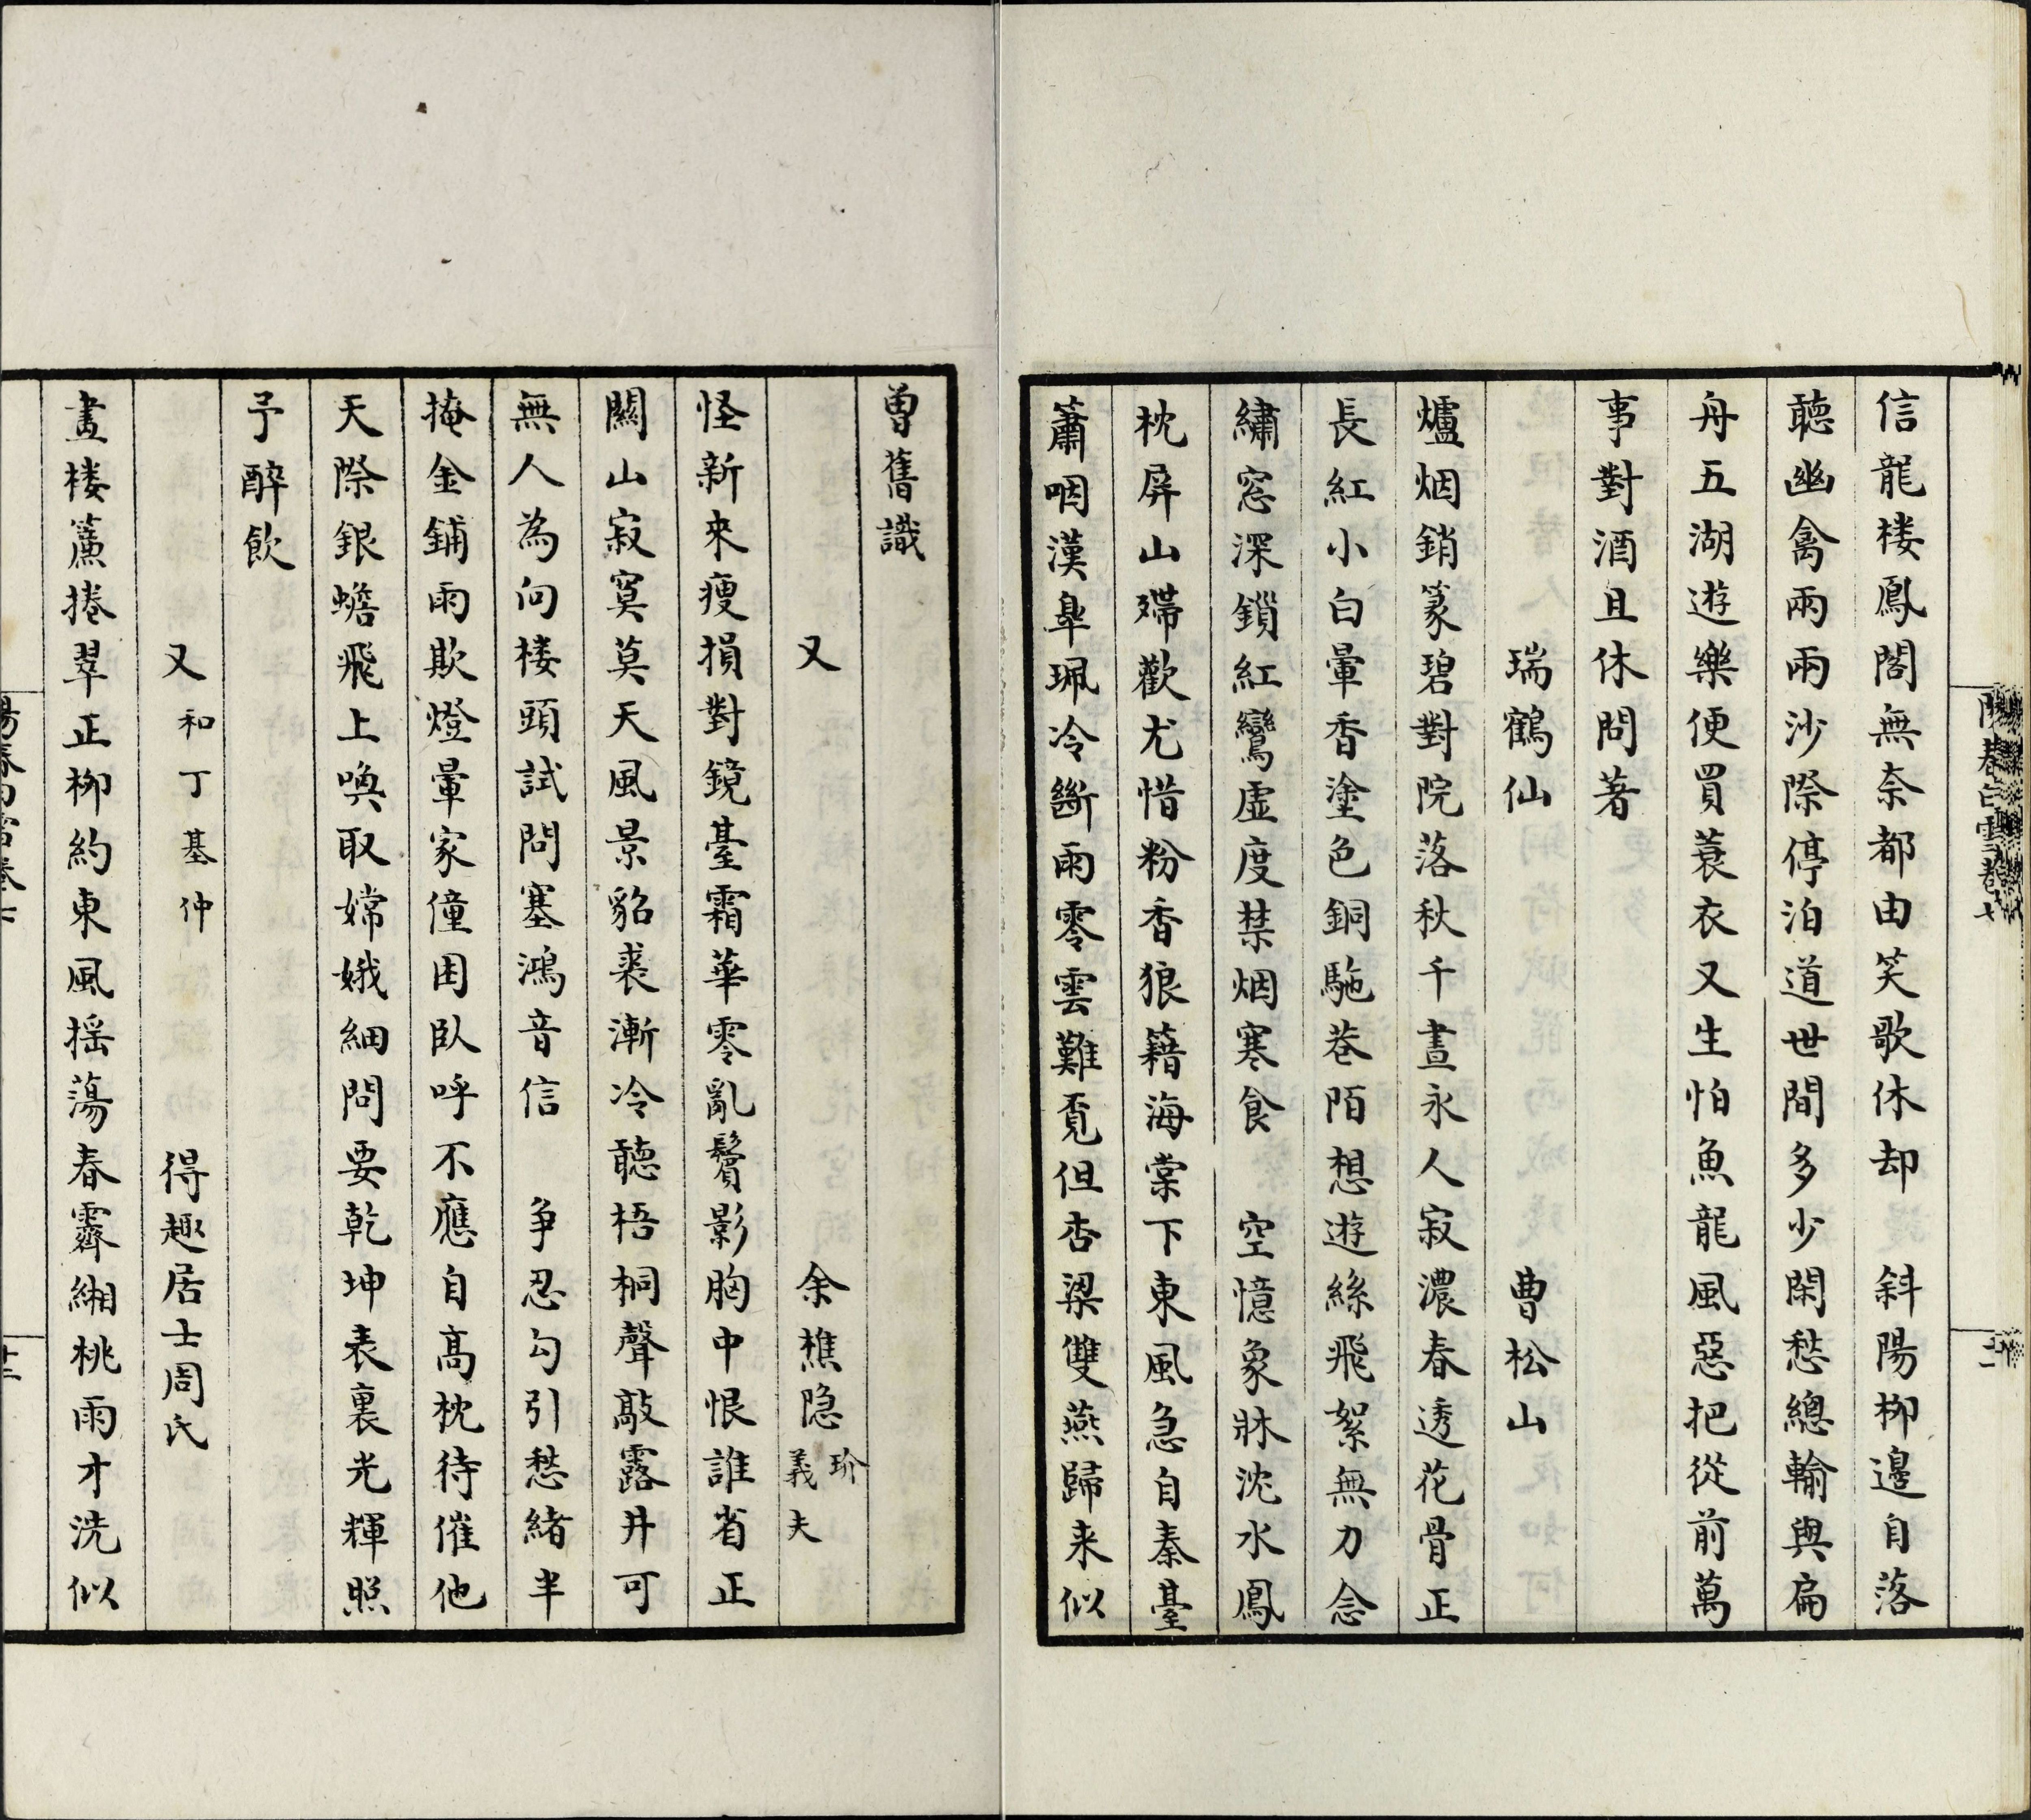 信龍楼鳳閣無奈都由笑歌休却　斜陽柳邊自落
聴幽禽兩兩沙際停泊道世間多少閑愁總輸與扁
舟五湖遊樂便買蓑衣又生怕魚龍風惡把從前萬
事對酒且休問著
瑞鶴仙　曹松山
爐烟銷篆碧對院落秋千晝永人寂濃春透花骨正
長紅小白暈香塗色銅駞巷陌想遊絲飛絮無力念
繡窓深鎖紅鸞虛度禁烟寒食　空憶象牀沈水鳳
枕屏山殢歡尤惜粉香狼籍海棠下東風急自秦臺
簫咽漢臯珮冷斷雨零雲難覔但杏梁雙燕歸来似
曽舊識
又　余樵隐玠義夫
怪新來瘦損對鏡臺霜華零亂鬢影胸中恨誰省正
關山寂寞莫天風景貂裘漸冷聽梧桐聲敲露井可
無人為向楼頭試問塞鴻音信　争忍勾引愁緒半
掩金鋪雨欺燈暈家僮困臥呼不應自髙枕待催他
天際銀蟾飛上喚取嫦娥細問要乾坤表裏光輝照
予醉飲
又和丁基仲　得趣居士周氏
畫楼簾捲翠正柳約東風摇蕩春霽緗桃雨才洗似